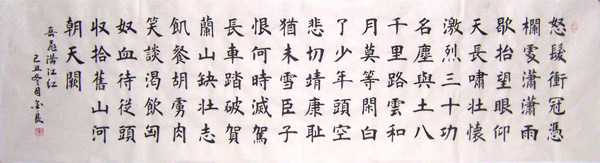 怒髮衝冠憑
欄處瀟瀟雨
歇抬望眼仰
天長嘯壯懷
激烈三十功
名塵與土八
千里路雲和
月莫等閑白
了少年頭空
悲切靖康耻
猶未雪臣子
恨何時滅駕
長車踏破賀
蘭山缺壯志
飢餐胡虜肉
笑談渴飲匈
奴血待從頭
收拾舊山河
朝天闕
岳飛滿江紅
己丑冬月